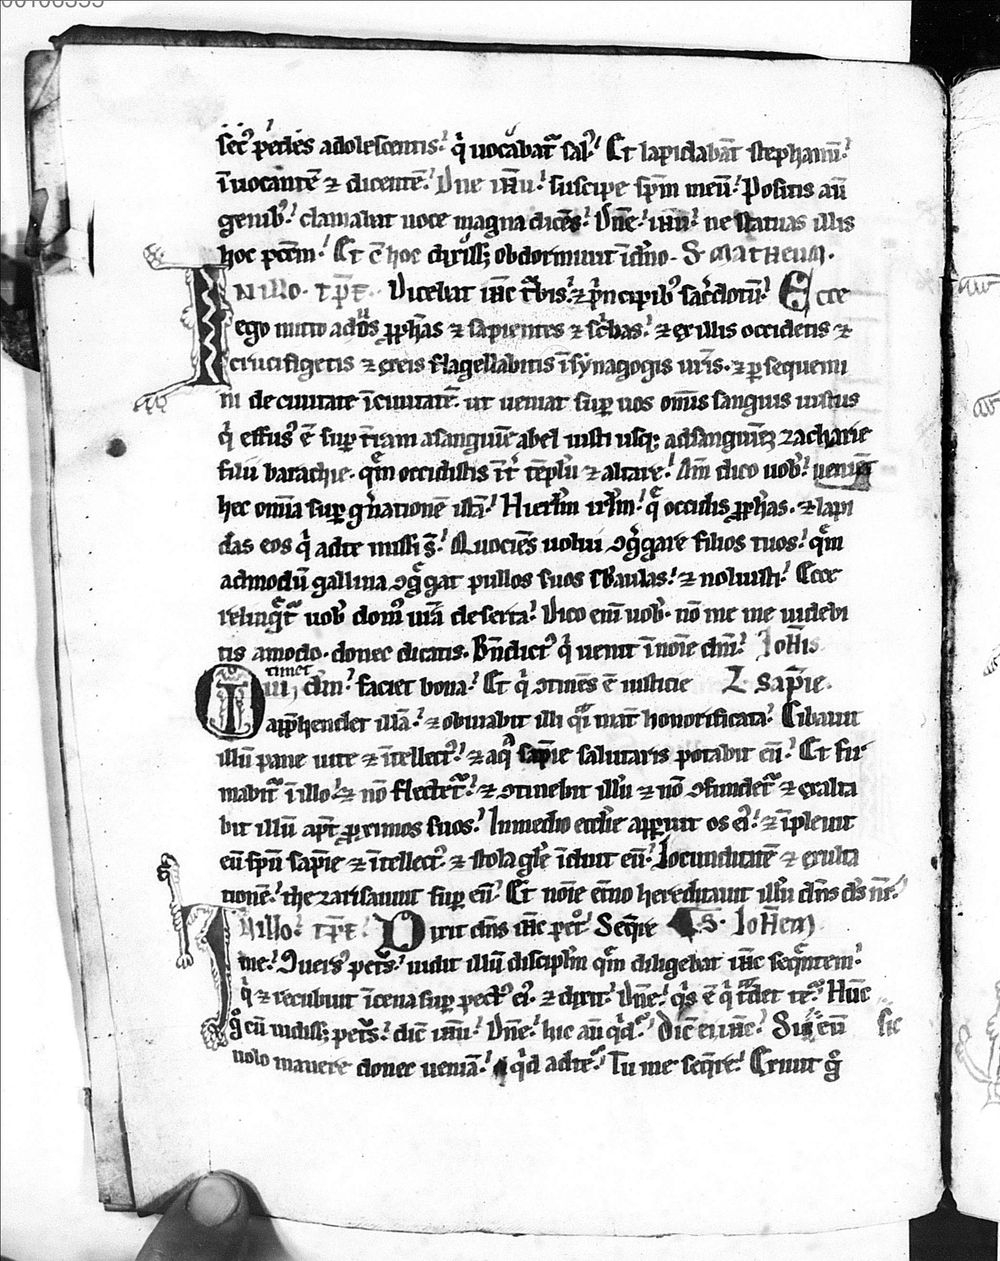 sec᷒ pedes adolescentis. q̇ uocabat᷑ sal᷒. Et lapidabāt stephanū.
īuocantē ⁊ dicentē. Dn̄e ih̄u. suscipe sp̄m meū. Positis aū
genib᷒. clamauit uoce magna dicēs. Dn̄e. ne statuas illis
hoc pctm̄. Et c̄ hoc dixiss; obdormiuit ī dn̄o. S. Matheum.
In illo. tp̄r. Dicebat ih̄c t᷑bis ⁊ p̄ncipib᷒ sac̄dotū. Ecce
ego mitto ad uos ꝓph̄as ⁊ sapientes ⁊ sc̄bas. ⁊ ex illis occidetis ⁊
crucifigetis ⁊ ex eis flagellabitis ī synagogis ur̄is. ⁊ ꝑsequemi
ni de ciuitate ī ciuitatē. ut ueniat suꝑ uos om̄is sanguis iustus
q̇ effus᷒ ē suꝑ t̄ram a sanguine abel iusti usq; ad sanguinē zacharie
filii barachie. quē occidistis īt᷒ tēplū ⁊ altare. Am̄ dico uob᷒. ueniēt
hec om̄ia suꝑ gn̄ationē istā. Hierl̄m irl̄m. q̄ occidis ꝓph̄as. ⁊ lapi
das eos q̇ ad te missi s̄. Quociēs uolui ꝯg̑gare filios tuos. quē
admodū gallina ꝯg̑gat pullos suos sb̄ alas. ⁊ noluisti. Ecce
relinq̄t᷑ uob᷒ dom᷒ ur̄a deserta. Dico eni uob᷒. nō me me uidebi
tis amodo. donec dicatis. Bn̄dict᷒ q̇ uenit ī noīe dn̄i. Ioh̄is
timet
Qui dm̄. faciet bona. Et q̇ ꝯtinēs ē iusticie L. sapīe.
appr̄hendet illā. ⁊ obuiabit illi q̄i mat᷑ honorificata. Cibauit
illū pane uite ⁊ ītellect᷒. ⁊ aq̄ sapīe salutaris potabit eū. Et fir
mabit᷑ ī illo. ⁊ nō flectet᷑. ⁊ ꝯtinebit illū ⁊ nō ꝯfundet᷑ ⁊ exalta
bit illū apt̄ ꝓximos suos. In medio eccl̄ie apꝑuit os ei᷒. ⁊ īpleuit
eū sp̄u sapīe ⁊ ītellect᷒. ⁊ stola gl̄e īduit eū. Iocunditatē ⁊ exulta
tionē. thezarisauit suꝑ eū. Et noīe et̄no hereditauit illū dn̄s ds̄ nr̄.
In illo. tp̄r. Dixit dn̄s ih̄c pet᷒. Seq̄re S. Ioh̄em
me. Ꝯuers᷒ petr᷒. uidit illū discipl̄m quē diligebat ih̄c seq̄ntem.
q̇ ⁊ recubuit ī cena suꝑ pect᷒ ei᷒. ⁊ dixit. Dn̄e. q̇s ē q̇ t̄det te. Hūc
g̊ cū uidiss; petr᷒. dic̄ ih̄u. Dn̄e. hic aū q̇d. Dic̄ ei ih̄c. Sic eū sic
uolo manere donec ueniā. q̇d ad te. Tu me seq̄re. Exiuit g̊